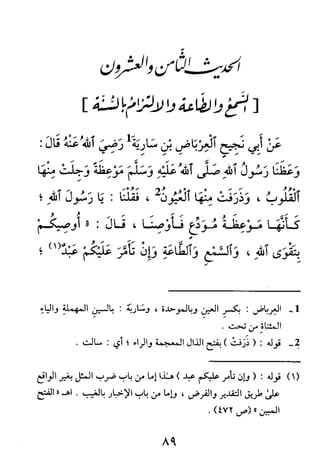 الحديث الثامن والعشرون
[ السَّمع والطَّاعة والالتزام بالسُّنة ]
عَنْ أَبِي نَجِيحٍ الْعِرْبَاضِ بْنِ سَارِيَةَ1 رَضِيَ اللهُ عَنْهُ قَالَ :
وَعَظَنَا رَسُولُ اللهِ صَلَّى اللهُ عَلَيْهِ وَسَلَّمَ مَوْعِظَةً وَجِلَتْ مِنْهَا
الْقُلُوبُ ، وَذَرَفَتْ مِنْهَا الْعُيُونُ2 ، فَقُلْنَا : يَا رَسُولَ اللهِ ؛
كَأَنَّهَا مَوْعِظَةُ مُوَدِّعٍ فَأَوْصِنَا ، قَالَ : « أُوصِيكُمْ
بِتَقْوَى اللهِ ، وَالسَّمْعِ وَالطَّاعَةِ وَإِنْ تَأَمَّرَ عَلَيْكُمْ عَبْدٌ(١) ؛
1 - العرباض : بكسر العين وبالموحدة ، وسارية : بالسين المهملة والياء
المثناة من تحت .
2 - قوله : ( ذَرَفَتْ ) بفتح الذال المعجمة والراء ؛ أي : سالت .
(١) قوله : ( وإن تأمر عليكم عبد ) هٰذا إما من باب ضرب المثل بغير الواقع
علىٰ طريق التقدير والفرض ، وإما من باب الإخبار بالغيب . اهـ « الفتح
المبين » ( ص ٤٧٢ ) .
٨٩